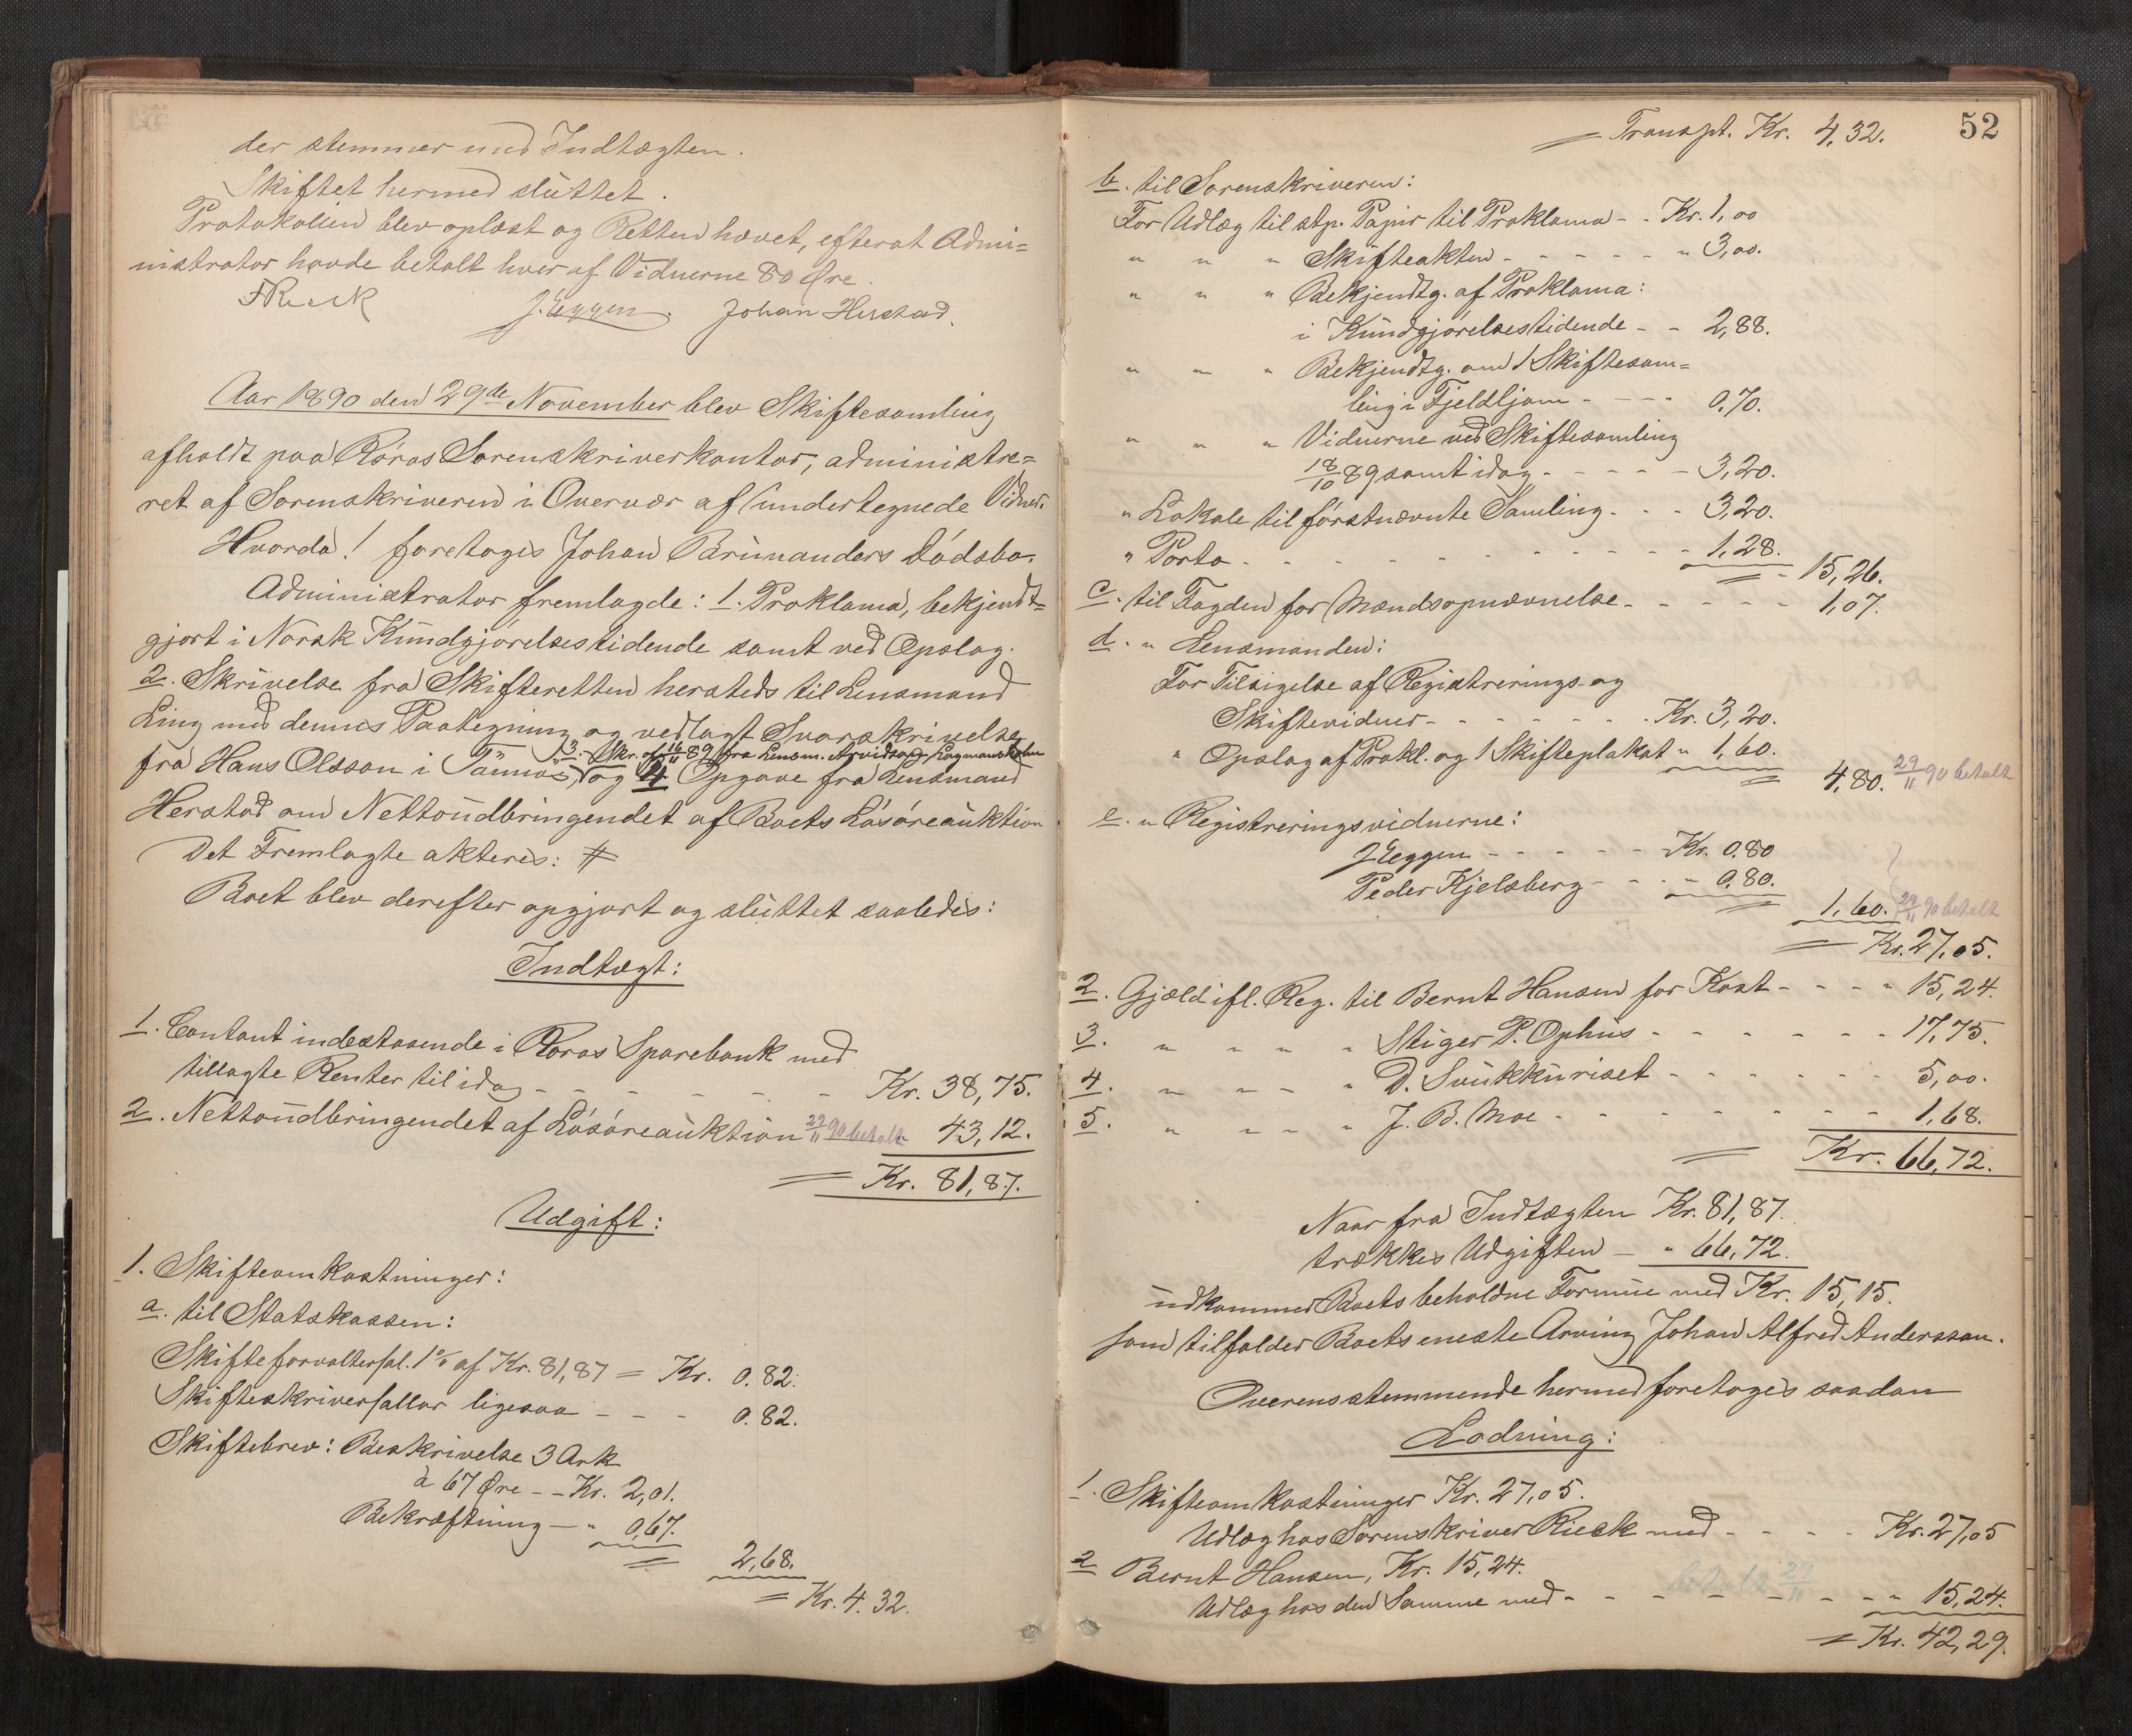 der stemmer med Indtægten.
Skiftet hermed sluttet.
Protokollen blev oplæst og Retten hævet, efterat Admi=
nistrator havde betalt hver af Vidnerne 80 Øre.
J. Eggen. Johan Herstad.
Aar 1890 den 29de November blev Skiftesamling
afholdt paa Røros Sorenskriverkontor, administre=
ret af Sorenskriveren i Overvær af undertegnede Vidner.
Hvorda! foretoges Johan Brunanders Dødsbo.
Administrator fremlagde: 1. Proklama, bekjendt=
gjort i Norsk Kundgjørelsestidende samt ved Opslag.
2. Skrivelse fra Skifteretten hersteds til Lensmand
Ling med dennes Paategning og vedlagt Svarskrivelse
3. Skr. af 16/11 89 fra Lensm. Arvidson
fra Hans Olsson i Tännäs, og 4. Opgave fra Lensmand
Herstad om Nettoudbringendet af Boets Løsøreauktion
Det Fremlagte akteres: #
Boet blev derefter opgjort og sluttet saaledes:
Indtægt:
1. Contant indestaaende i Røros Sparebank med
tillagte Renter til idag - - - - - Kr. 38,75.
2. Nettoudbringendet af Løsøreauktion 29/11 90 betalt " 43,12.
= Kr. 81,87.
Udgift:
1. Skifteomkostninger:
a. til Statskassen:
Skifteforvaltersal. 1% af Kr. 81,87 = Kr. 0.82.
Skifteskriversallar ligesaa - - - 0.82.
Skiftebrev: Beskrivelse 3 Ark
à 67 Øre - - Kr. 2,01.
Bekræftning - " 0,67.
= 2,68.
= Kr. 4.32.
52
= Transpt. Kr. 4,32.
b. til Sorenskriveren:
For Udlæg til stp. Papir til Proklama - - Kr. 1,00
" " " Skifteakten - - - - - " 3,00.
" " " Bekjendtg. af Proklama:
i Kundgjørelsestidende - - 2,88.
" " " Bekjendtg. om 1 Skiftesam=
ling i Fjeldljom - - - - 0.70.
" " " Vidnerne ved Skiftesamling
18/10 89 samt idag - - - - - 3,20.
" Lokale til førstnævnte Samling - - - 3,20.
" Porto - - - - - - - - - 1,28.
= - 15,26.
c. til Fogden for Mændsopnævnelse - - - - - 1,07.
d. " Lensmanden:
For Tilsigelse af Registrerings- og
Skiftevidner - - - - - - Kr. 3,20.
" Opslag af Prokl. og 1 Skifteplakat " 1,60.
= 4,80. 29/11 90 betalt
e. " Registreringsvidnerne:
J Eggen - - - - - Kr. 0.80
Peder Kjelsberg - - - " 0,80.
= 1,60. 29/11 90 betalt
= Kr. 27,05.
2. Gjæld ifl. Reg. til Bernt Hansen for Kost - - - - " 15,24.
3. " " " " Stiger P. Ophus - - - - - - - 17,75.
4. " " " " D. Svukkuriset - - - - - - 5,00.
5. " " " " J. B. Moe - - - - - - - - 1,68.
= Kr. 66,72.
Naar fra Indtægten Kr. 81,87.
trækkes Udgiften - " 66,72.
udkommer Boets beholdne Formue med Kr. 15,15.
som tilfalder Boets eneste Arving Johan Alfred Andersson.
Overensstemmende hermed foretoges saadan
Lodning:
1. Skifteomkostninger Kr. 27,05.
Udlæg hos Sorenskriver Rieck med - - - - Kr. 27,05
2 Bernt Hansen, Kr. 15,24.
betalt 29/11
Udlæg hos den Samme med - - - - - - - - " 15,24.
= Kr. 42,29.